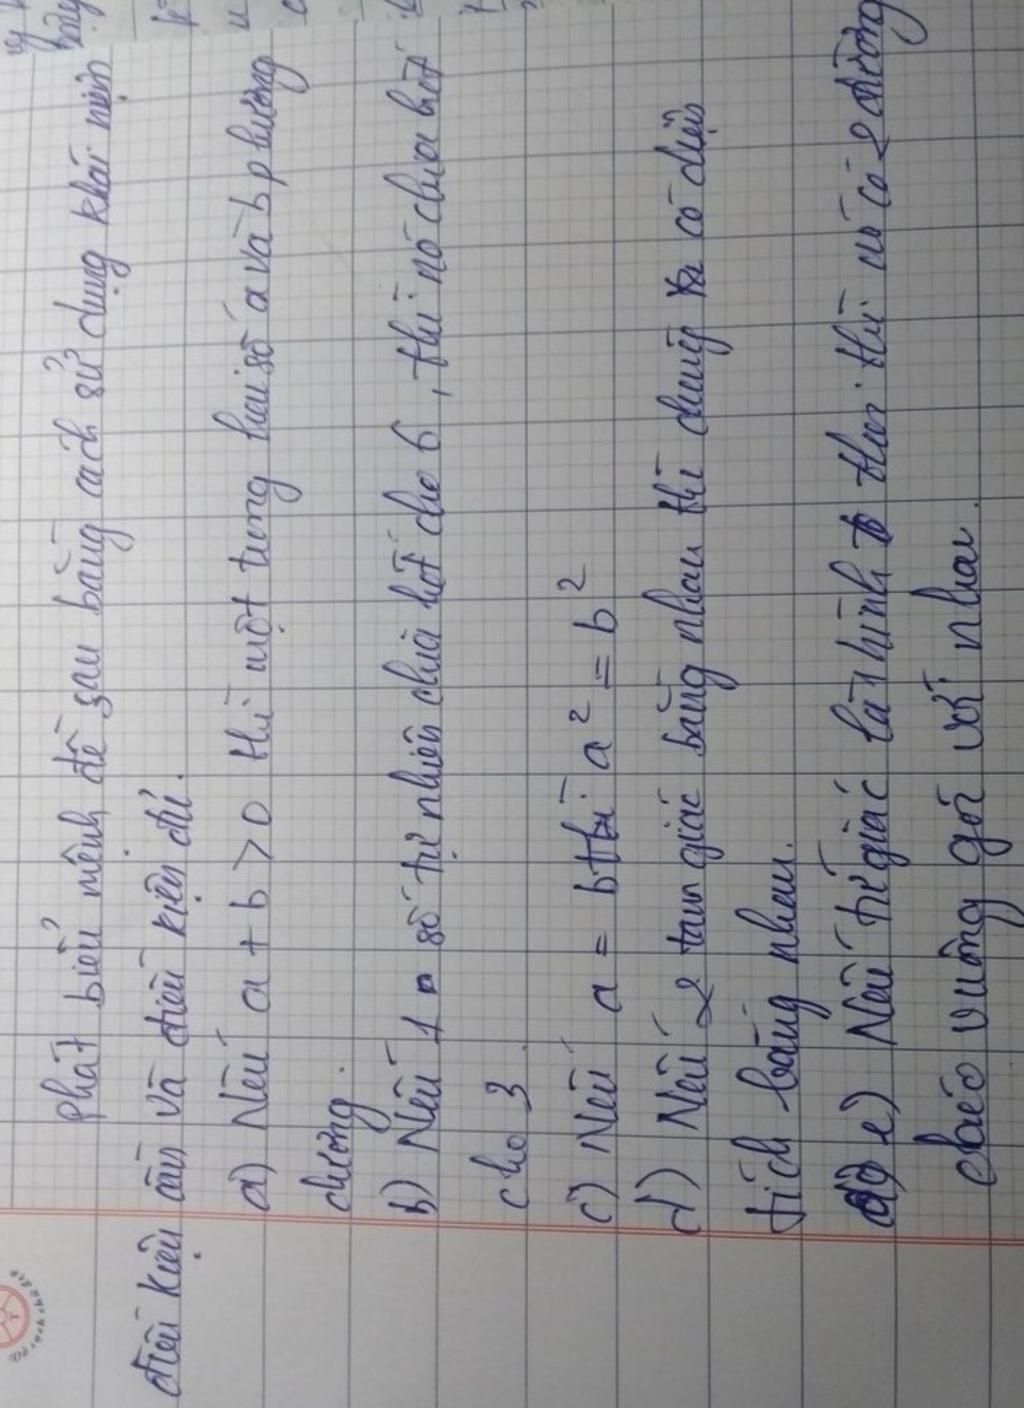 phát biểu mệnh đề sau bằng cách sử dụng khái niệm
điều kiện cần và điều kiện đủ.
a) Nếu a + b > 0 thì một trong hai số a và b phải dương
dương.
b) Nếu 1 số tự nhiên chia hết cho 6, thì nó chia hết
cho 3
c) Nếu a = b thì a² = b²
d) Nếu 2 tam giác bằng nhau thì chúng có diện
tích bằng nhau.
e) Nếu tứ giác là hình thoi thì nó có 2 đường
chéo vuông góc với nhau.